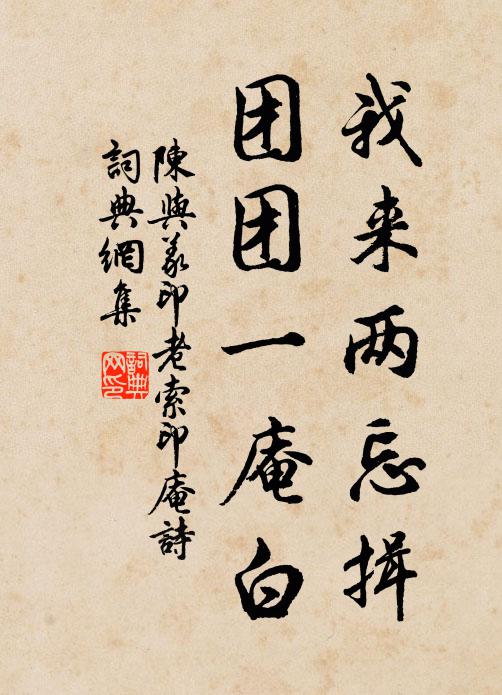 我来两忘揖
团团一庵白
陳與義印老索印庵詩
詞典網集
詞典網印